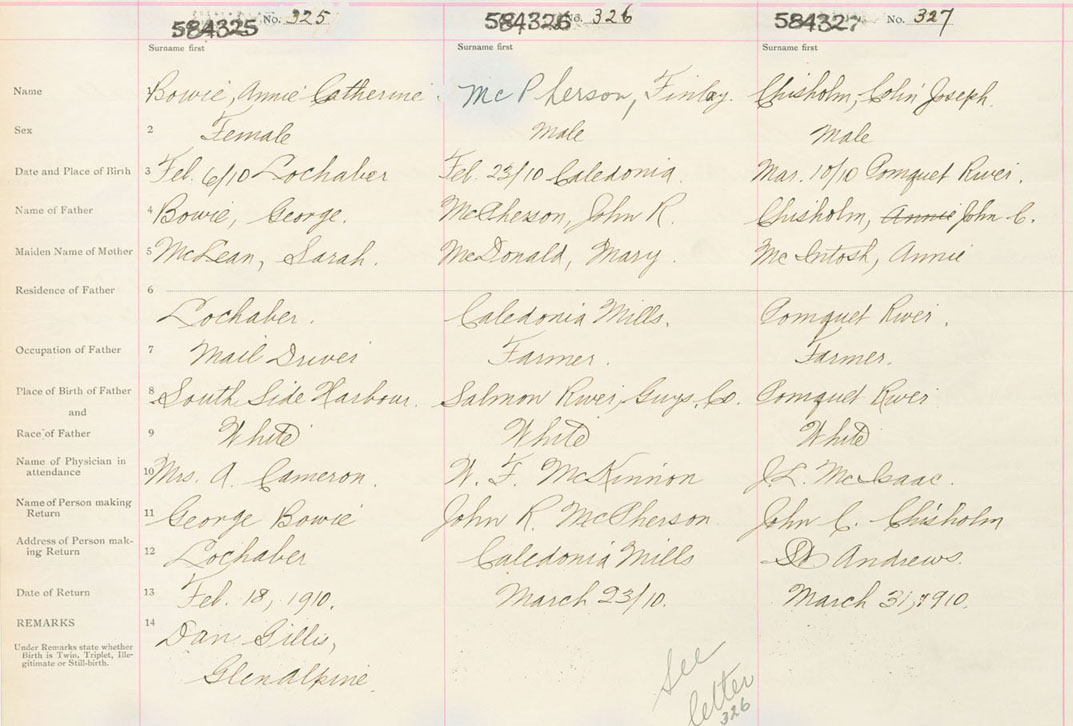 584325 No. 325 584326 No. 326 584327 No. 327
Surname first Surname first Surname first
Name 1 Bowie, Annie Catherine. McPherson, Finlay. Chisholm, Colin Joseph.
Sex 2 Female Male Male
Date and Place of Birth 3 Feb. 6/10 Lochaber Feb. 23/10 Caledonia. Mar. 10/10 Pomquet River.
Name of Father 4 Bowie, George. McPherson, John R. Chisholm, Annie John C.
Maiden Name of Mother 5 McLean, Sarah. McDonald, Mary. McIntosh, Annie
Residence of Father 6
Lochaber. Caledonia Mills. Pomquet River.
Occupation of Father 7 Mail Driver Farmer. Farmer.
Place of Birth of Father 8 South Side Harbour. Salmon River, Guys. Co. Pomquet River
and
Race of Father 9 White White White
Name of Physician in
attendance 10 Mrs. A. Cameron. W. F. McKinnon J.L. McIsaac.
Name of Person making
Return 11 George Bowie John R. McPherson John C. Chisholm
Address of Person mak-
ing Return 12 Lochaber Caledonia Mills St Andrews.
Date of Return 13 Feb. 18, 1910. March 23/10. March 31, 1910.
REMARKS 14 Dan Gillis,
Under Remarks state whether
Birth is Twin, Triplet, Ille-
gitimate or Still-birth.
Glenalpine.
See
letter
326